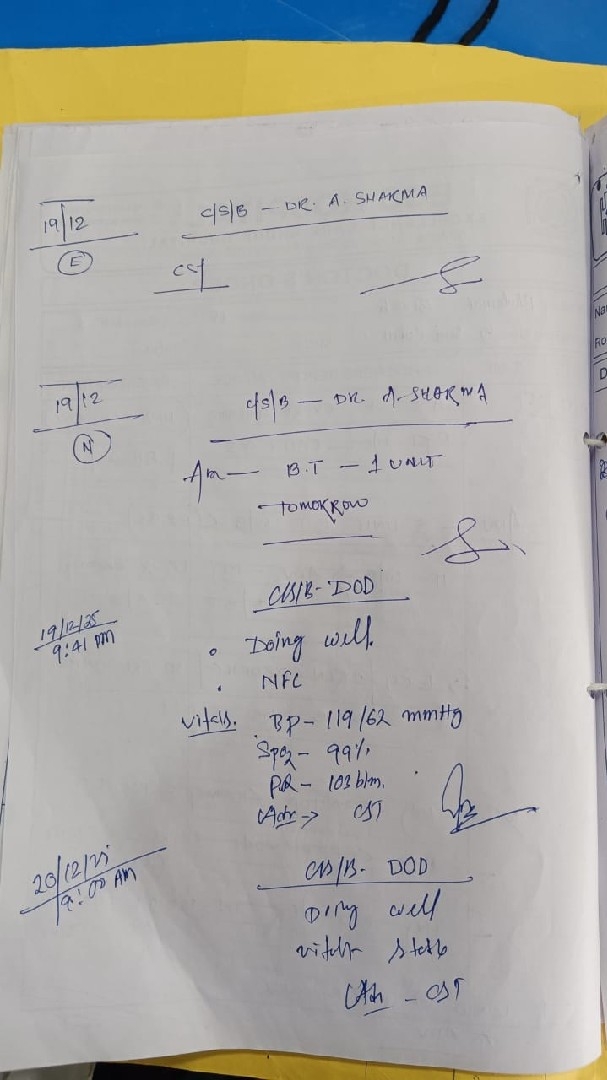 19/12
C/S/B - DR. A. SHARMA
E
CST
19/12
C/S/B - DR. A. SHARMA
N
Adv - B.T - 1 UNIT
- TOMORROW
C/S/B - DOD
19/12/25
9:41 PM
• Doing well.
• NFC
Vitals. BP - 119/62 mmHg
SpO2 - 99%
PR - 103 b/m.
Adv → CST
20/12/25
9:00 AM
C/S/B - DOD
Doing well
vitals stable
Adv - CST